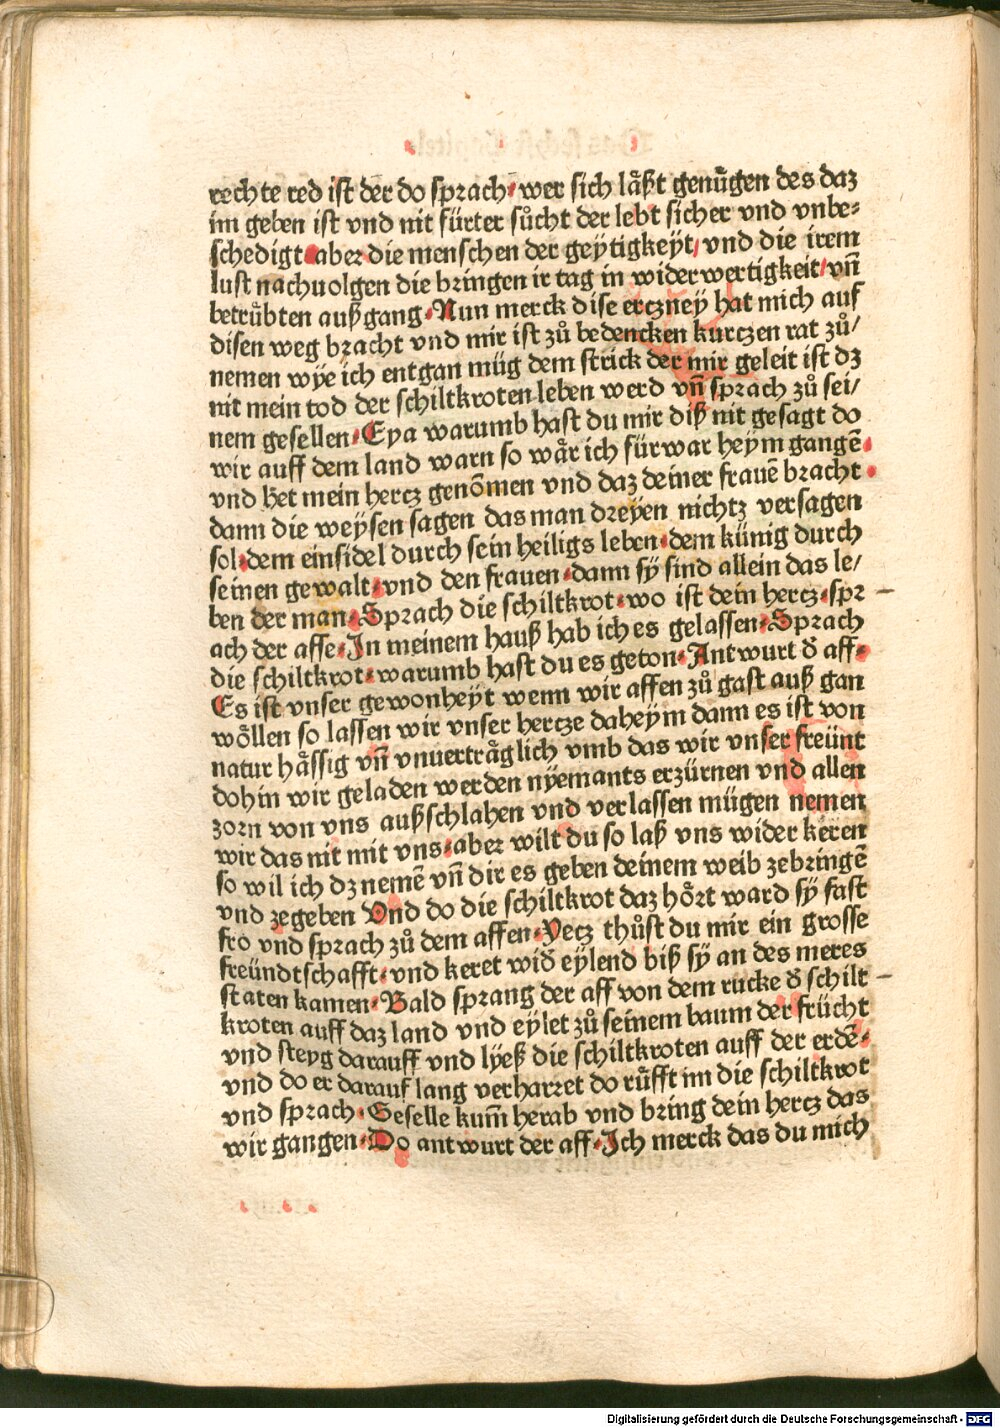 rechte red ist der do sprach· wer sich låßt genůgen des daz
im geben ist vnd nit fürter sůcht der lebt sicher vnd vnbe-
schedigt·aber die menschen der geÿtigkeÿt/ vnd die irem
lust nachuolgen die bringen ir tag in widerwertigkeit/ vñ
betrůbten außgang·Nun merck dise ercznëÿ hat mich auf
disen weg bracht vnd mir ist zů bedencken kurczen rat zů/
nemen wÿe ich entgan müg dem strick der mir geleit ist dz
nit mein tod der schiltkroten leben werd vñ sprach zů sei/
nem gesellen·Eya warumb hast du mir diß nit gesagt do
wir auff dem land warn so wår ich fürwar heÿm gangē·
vnd het mein hercz genōmen vnd daz deiner frauē bracht·
dann die weÿsen sagen das man dreyen nichtz versagen
sol·dem einsidel durch sein heiligs leben·dem künig durch
seinen gewalt·vnd den frauen·dann sÿ sind allein das le/
ben der man·Sprach die schiltkrot·wo ist dein hercz·spr
ach der affe·In meinem hauß hab ich es gelassen·Sprach
die schiltkrot·warumb hast du es geton·Antwurt ð aff·
Es ist vnser gewonheÿt wenn wir affen zů gast auß gan
wöllen so lassen wir vnser hercze daheÿm dann es ist von
natur håssig vñ vnuertråglich vmb das wir vnser freünt
dohin wir geladen werden nÿemants erzürnen vnd allen
zorn von vns außschlahen vnd verlassen mügen nemen
wir das nit mit vns·aber wilt du so laß vns wider keren
so wil ich dz nemē vñ dir es geben deinem weib zebringē
vnd zegeben Vnd do die schiltkrot daz hört ward sÿ fast
fro vnd sprach zů dem affen·Yecz thůst du mir ein grosse
freündtschafft·vnd keret wið eÿlend biß sÿ an des meres
staten kamen·Bald sprang der aff von dem rucke ð schilt
kroten auff daz land vnd eÿlet zů seinem baum der frücht
vnd steyg darauff vnd lÿeß die schiltkroten auff der erdē·
vnd do er darauf lang verharret do růfft im die schiltkrot
vnd sprach·Geselle kum̄ herab vnd bring dein hercz das
wir gangen·Do antwurt der aff·Ich merck das du mich
Digitalisierung gefördert durch die Deutsche Forschungsgemeinschaft - DFG